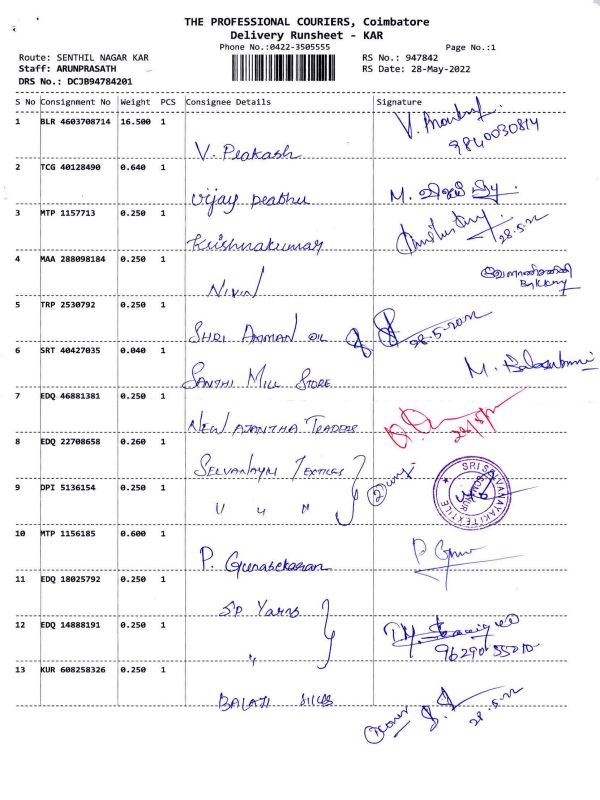 THE PROFESSIONAL COURIERS, Coimbatore
Delivery Runsheet - KAR
Phone No.:0422-3505555 Page No.:1
Route: SENTHIL NAGAR KAR RS No.: 947842
Staff: ARUNPRASATH RS Date: 28-May-2022
DRS No.: DCJB94784201
S No Consignment No Weight PCS Consignee Details Signature
1 BLR 4603708714 16.500 1 V. Prakash 9840030814
2 TCG 40128490 0.640 1 Vijay prabhu
3 MTP 1157713 0.250 1 Krishnakumar 28.5.22
4 MAA 288098184 0.250 1 Nivin
5 TRP 2530792 0.250 1 SHRI AMMAN OIL 28-5-2022
6 SRT 40427035 0.040 1 SANTHI MILL STORE
7 EDQ 46881381 0.250 1 NEW AJANTHA TRADERS
8 EDQ 22708658 0.260 1 SELVANAYAKI TEXTILES
SRI SELVANAYAKI TEXTILE
9 DPI 5136154 0.250 1 " " "
10 MTP 1156185 0.600 1 P. Gunasekaran
11 EDQ 18025792 0.250 1 SP Yarns
12 EDQ 14888191 0.250 1 "
13 KUR 608258326 0.250 1 BALAJI SILKS 28.5.22